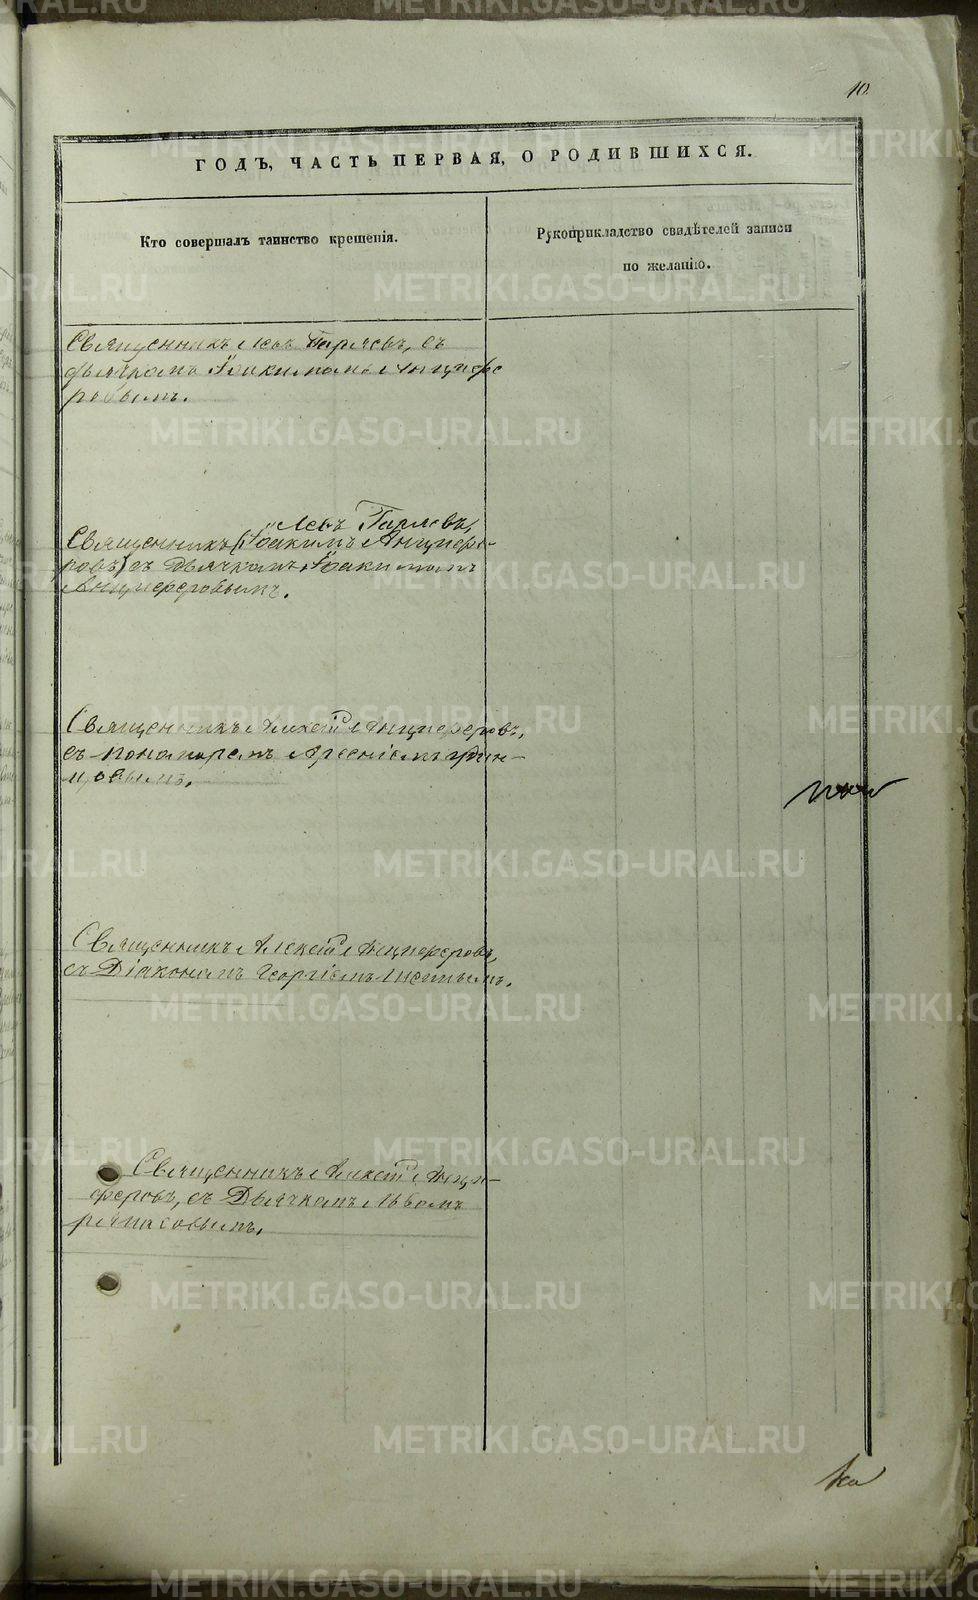 10.
ГОДЪ, ЧАСТЬ ПЕРВАЯ, О РОДИВШИХСЯ.
Кто совершалъ таинство крещенія.
Рукоприкладство свидѣтелей записи
по желанію.
Священникъ Левъ Гаряевъ, съ
дьячкомъ Іоакимомъ Анцифе
ровымъ.
Левъ Гаряевъ,
Священникъ (Іоакимъ Анцифе-
ровъ) съ Дьячкомъ Іоакимомъ
Анциферовымъ.
Священникъ Алексій Анциферовъ,
съ Пономаремъ Арсеніемъ
цовымъ.
Священникъ Алексій Анциферовъ,
съ Діакономъ Георгіемъ
Священникъ Алексій Анци-
феровъ, съ Дьячкомъ Львомъ
METRIKI.GASO-URAL.RU